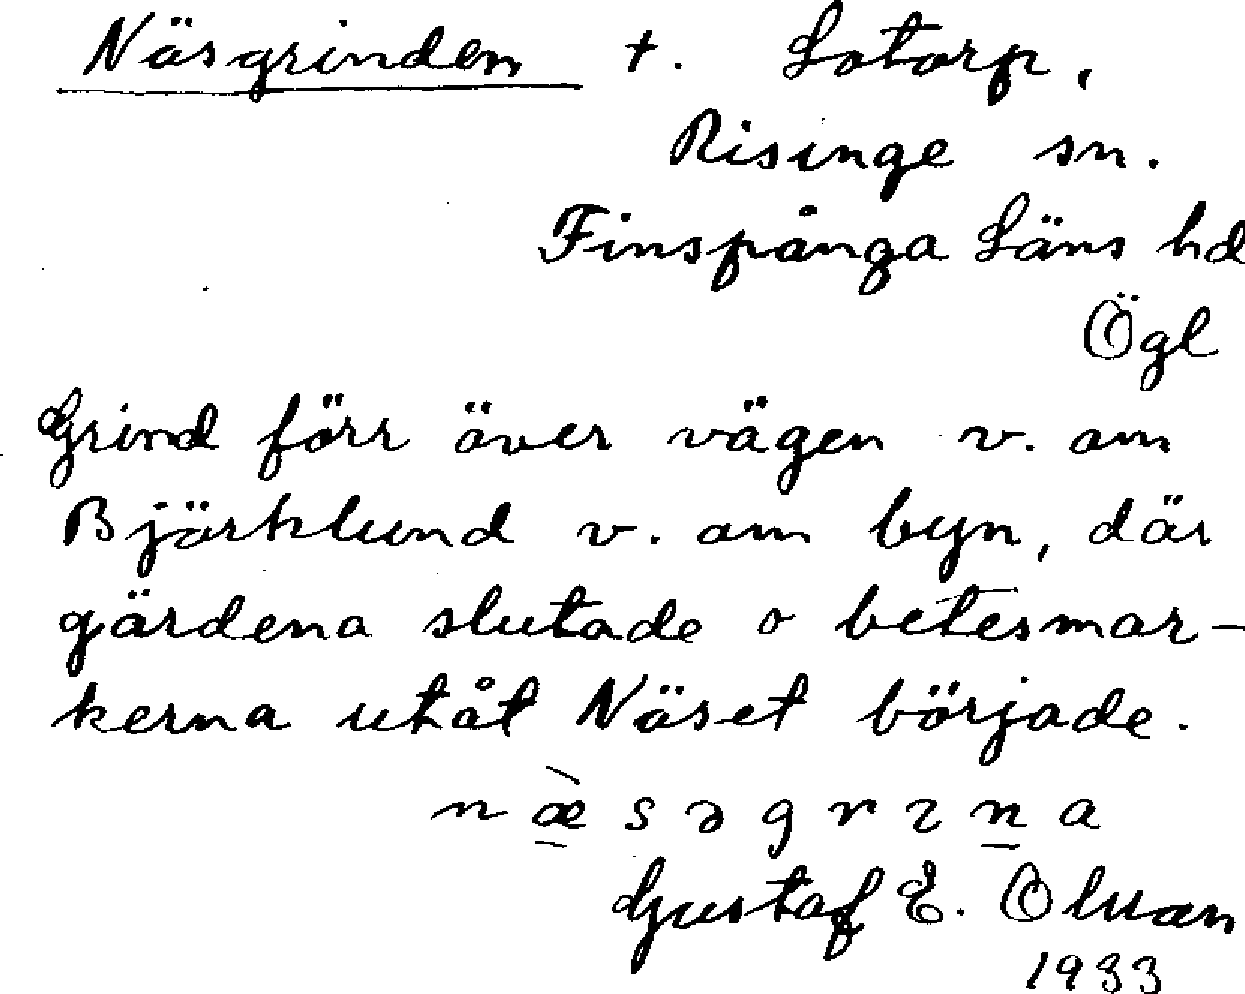 Näsgrinden +. Lotorp,
Risinge sn.
Finspånga Läns hd
Ögl
Grind förr över vägen v. om
Björklund v. om byn, där
gärdena slutade o betesmar-
kerna utåt Näset började.
næ̀səgrına
Gustaf E. Olsson
1933